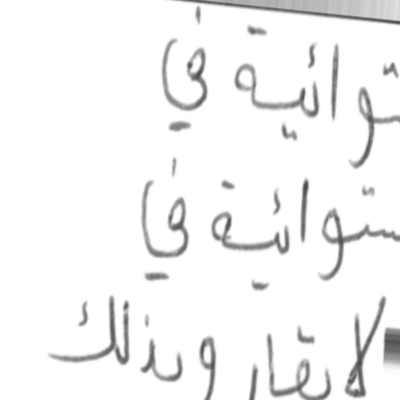 ستوائية في
ستوائية في
لا يقار وبذلك